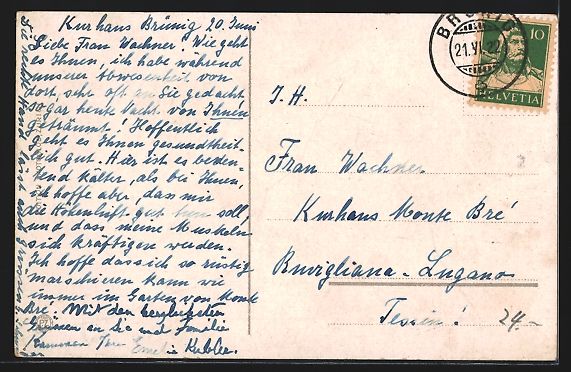 Kurhaus Brünig 20. Juni
Liebe Frau Wachner! Wie geht
es Ihnen, ich habe während
unserer Abwesenheit von
dort, sehr oft an Sie gedacht
sogar heute Nacht von Ihnen
geträumt! Hoffentlich
geht es Ihnen gesundheit-
lich gut. Hier ist es bedeu-
tend kälter, als bei Ihnen,
ich hoffe aber, dass mir
die Höhenluft gut tun soll,
und dass meine Muskeln
sich kräftigen werden.
Ich hoffe dass ich so rüstig
marschieren kann wie
immer im Garten von Monte
Bré. Mit den herzlichsten
Grüssen an Sie und Familie
Ihre Emilie Kubler.
BRÜNIG
21.VI.22
10
HELVETIA
T. H.
Frau Wachner
Kurhaus Monte Bré
Ruvigliana-Lugano
Tessin!
24.-